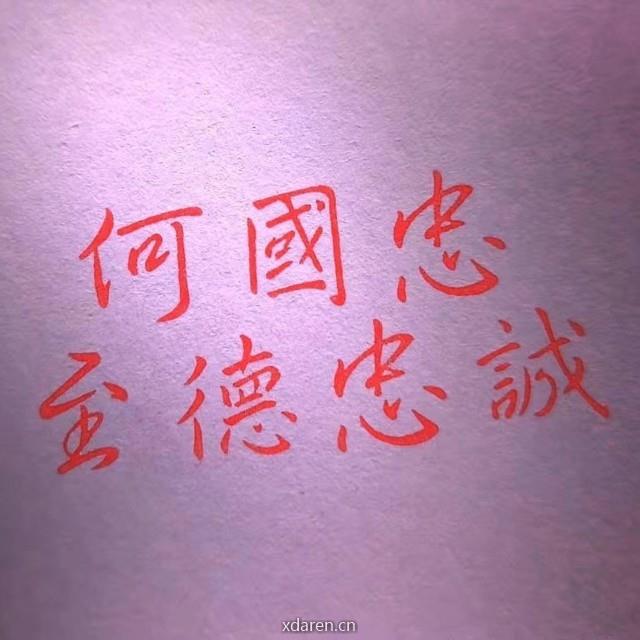 何國忠
至德忠誠
xdaren.cn